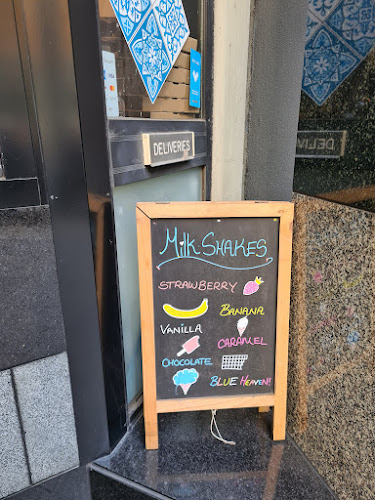 DELIVERIES
MilK·SHAKES
STRAWBERRY
BANANA
VANILLA
CARAMEL
CHOCOLATE
BLUE HEAVEN!!